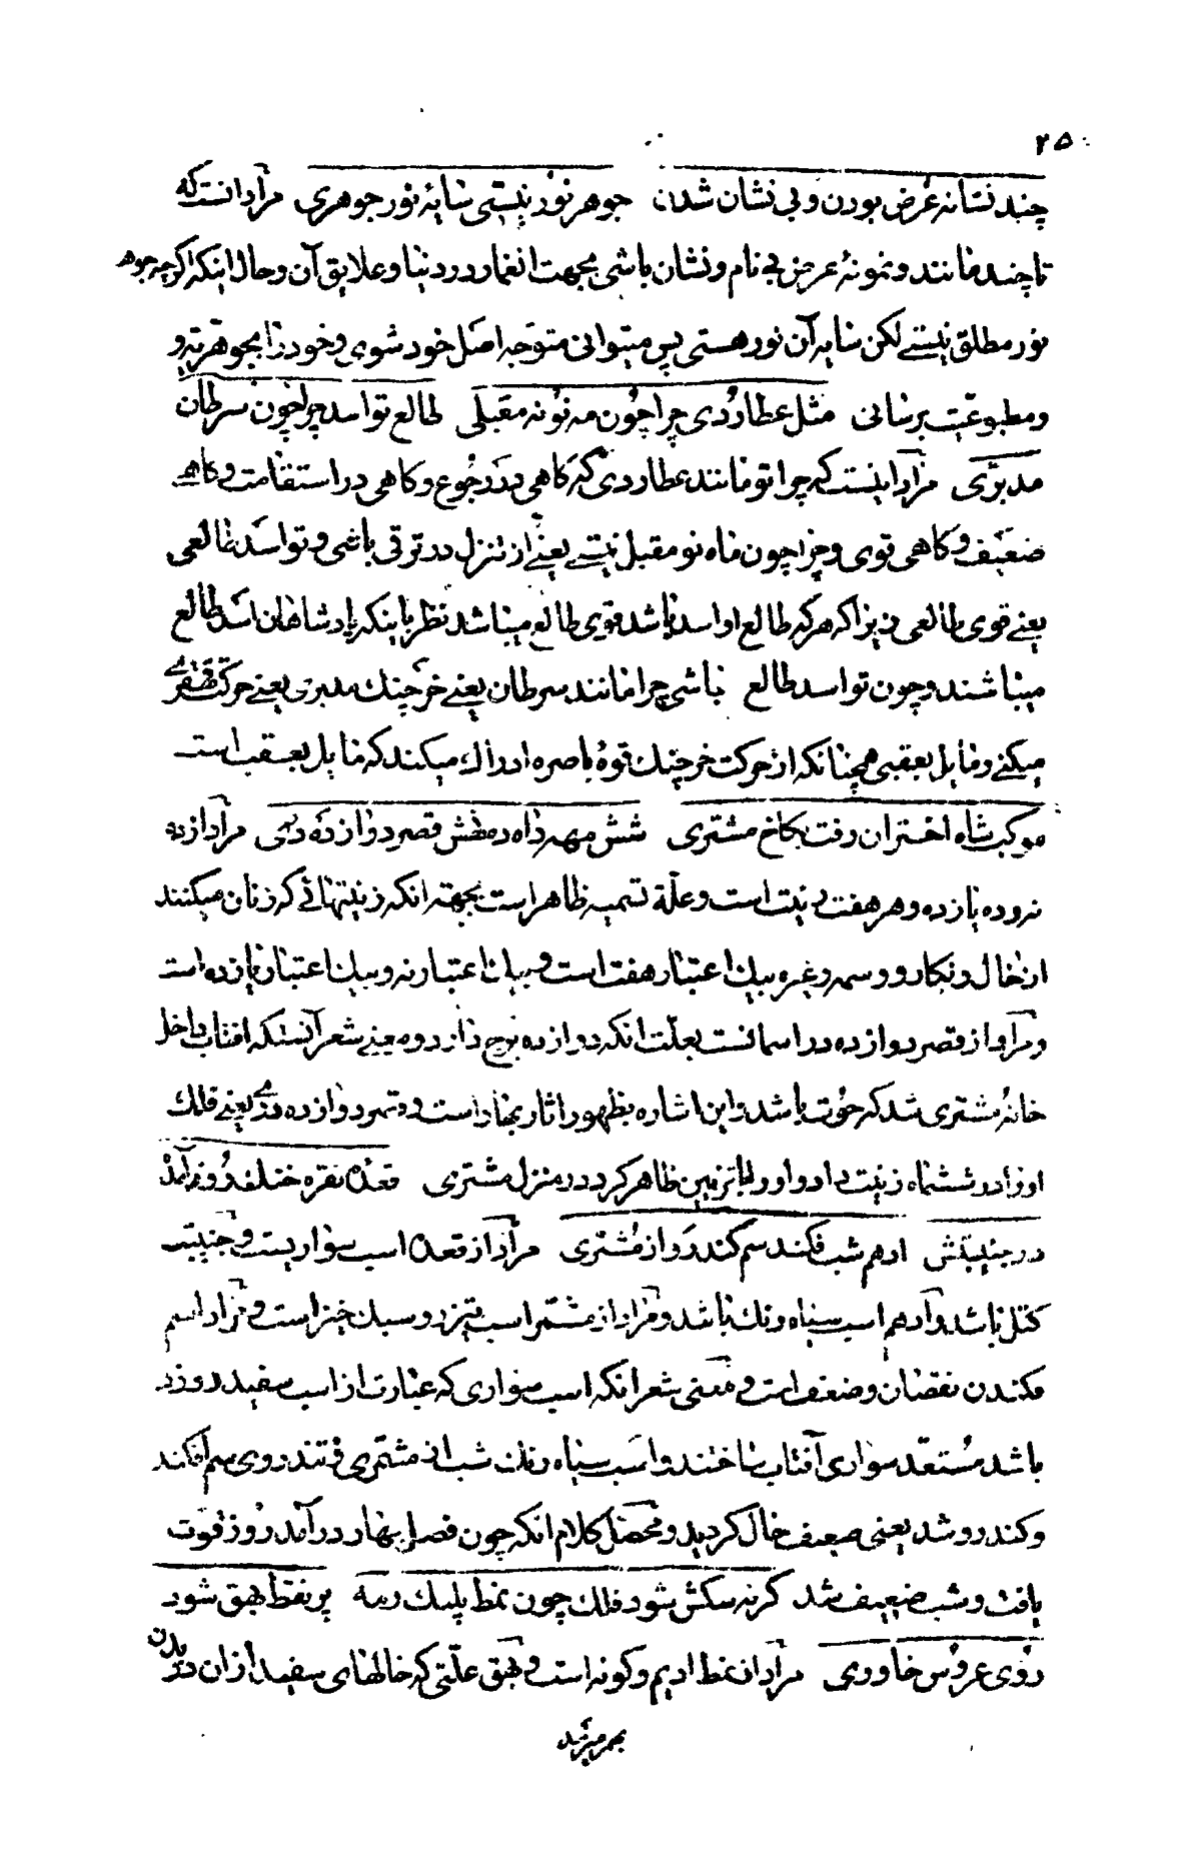 ۲۵
چند نشانهٔ عرض بودن و بی نشان شدن جوهر نور نیستی سایهٔ نور جوهری مراد انست که
تا چند مانند و نمونهٔ عرض بی نام و نشان باشی بجهت انغمار در دنیا و علایق آن و حال اینکه اگرچه جوهر
نور مطلق نیستی لکن سایه آن نور هستی پس میتوانی متوجه اصل خود شوی و خود را بجوهریت و
ومطبوعیت برسانی مثل عطاردی چرا چون مه نو نه مقبلی طالع تو اسد چرا چون سرطان
مدبری مراد اینست که چرا تو مانند عطاردی که کاهی در رجوع و کاهی در استقامت و کاهی
ضعیف و کاهی قوی و چرا چون ماه نو مقبل نیستی یعنی از تنزل در ترقی باشی و تو اسد طالعی
یعنی قوی طالعی زیرا که هرکه طالع او اسد باشد قوی طالع میباشد نظر باینکه پادشاهان اسد طالع
میباشند و چون تو اسد طالع باشی چرا مانند سرطان یعنی خرچنك مدبری یعنی حرکت قهقری
میکنی و مایل بعقبی همچنانکه از حرکت خرچنك قوهٔ باصره ادراك میکند که مایل بعقب است
موکب شاه اختران رفت بکاخ مشتری شش مهه داه ده قصر دوازده دری مراد از ده
نه و ده یازده و هر هفت زینت است و علة تسمیه ظاهر است بجهته انکه زینتهائی که زنان میکنند
از خال و نکار و وسمه و غیره بیك اعتبار هفت است و بیك اعتبار نه و بیك اعتبار یازده است
و مراد از قصر دوازده در اسمانست بعلت انکه دوازده برج دارد و معنی شعر آنستکه افتاب داخل
خانهٔ مشتری شد که حوت باشد و این اشاره بظهور اثار بهار است و قصر دوازده دری یعنی فلك
او را در ششماه زینت داد و اورا با تزیین ظاهر کرد در منزل مشتری قعدهٔ نقره خنك روز آمد
در جنیبتش ادهم شب فکند سم کند رو از مشتری مراد از قعده اسب سواریست و جنیبت
کتل باشد و ادهم اسب سیاه رنك باشد و مراد از مشتمر اسب تیز رو سبك خیز است و مراد از سم
فکندن نقصان و ضعف است و معنی شعر انکه اسب سواری که عبارت از اسب سفید روز
باشد مستعد سواری آفتاب ساختند و اسب سیاه رنك شب از مشتمری و تند روی سم افکند
و کند رو شد یعنی ضعیف حال کردید و محصل کلام انکه چون فصل بهار در آمد روز قوت
یافت و شب ضعیف شد کرنه سکش شود فلك چون نمط پلنك رمه پر نقط بهق شود
روی عروس خاوری مراد از نمط ادیم و کونه است و بهق علتی که خالهای سفید از ان در بدن
بهم میرسد